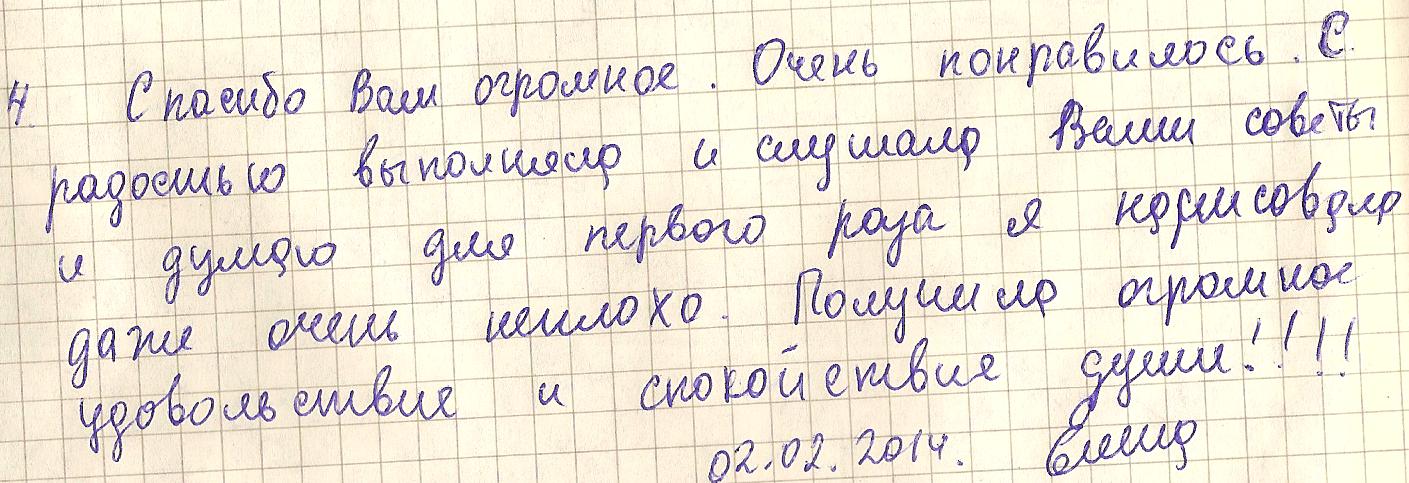 4. Спасибо Вам огромное. Очень понравилось. С
радостью выполняла и слушала Ваши советы
и думаю для первого раза я нарисовала
даже очень неплохо. Получила огромное
удовольствие и спокойствие души!!!!
02.02.2014. Елена